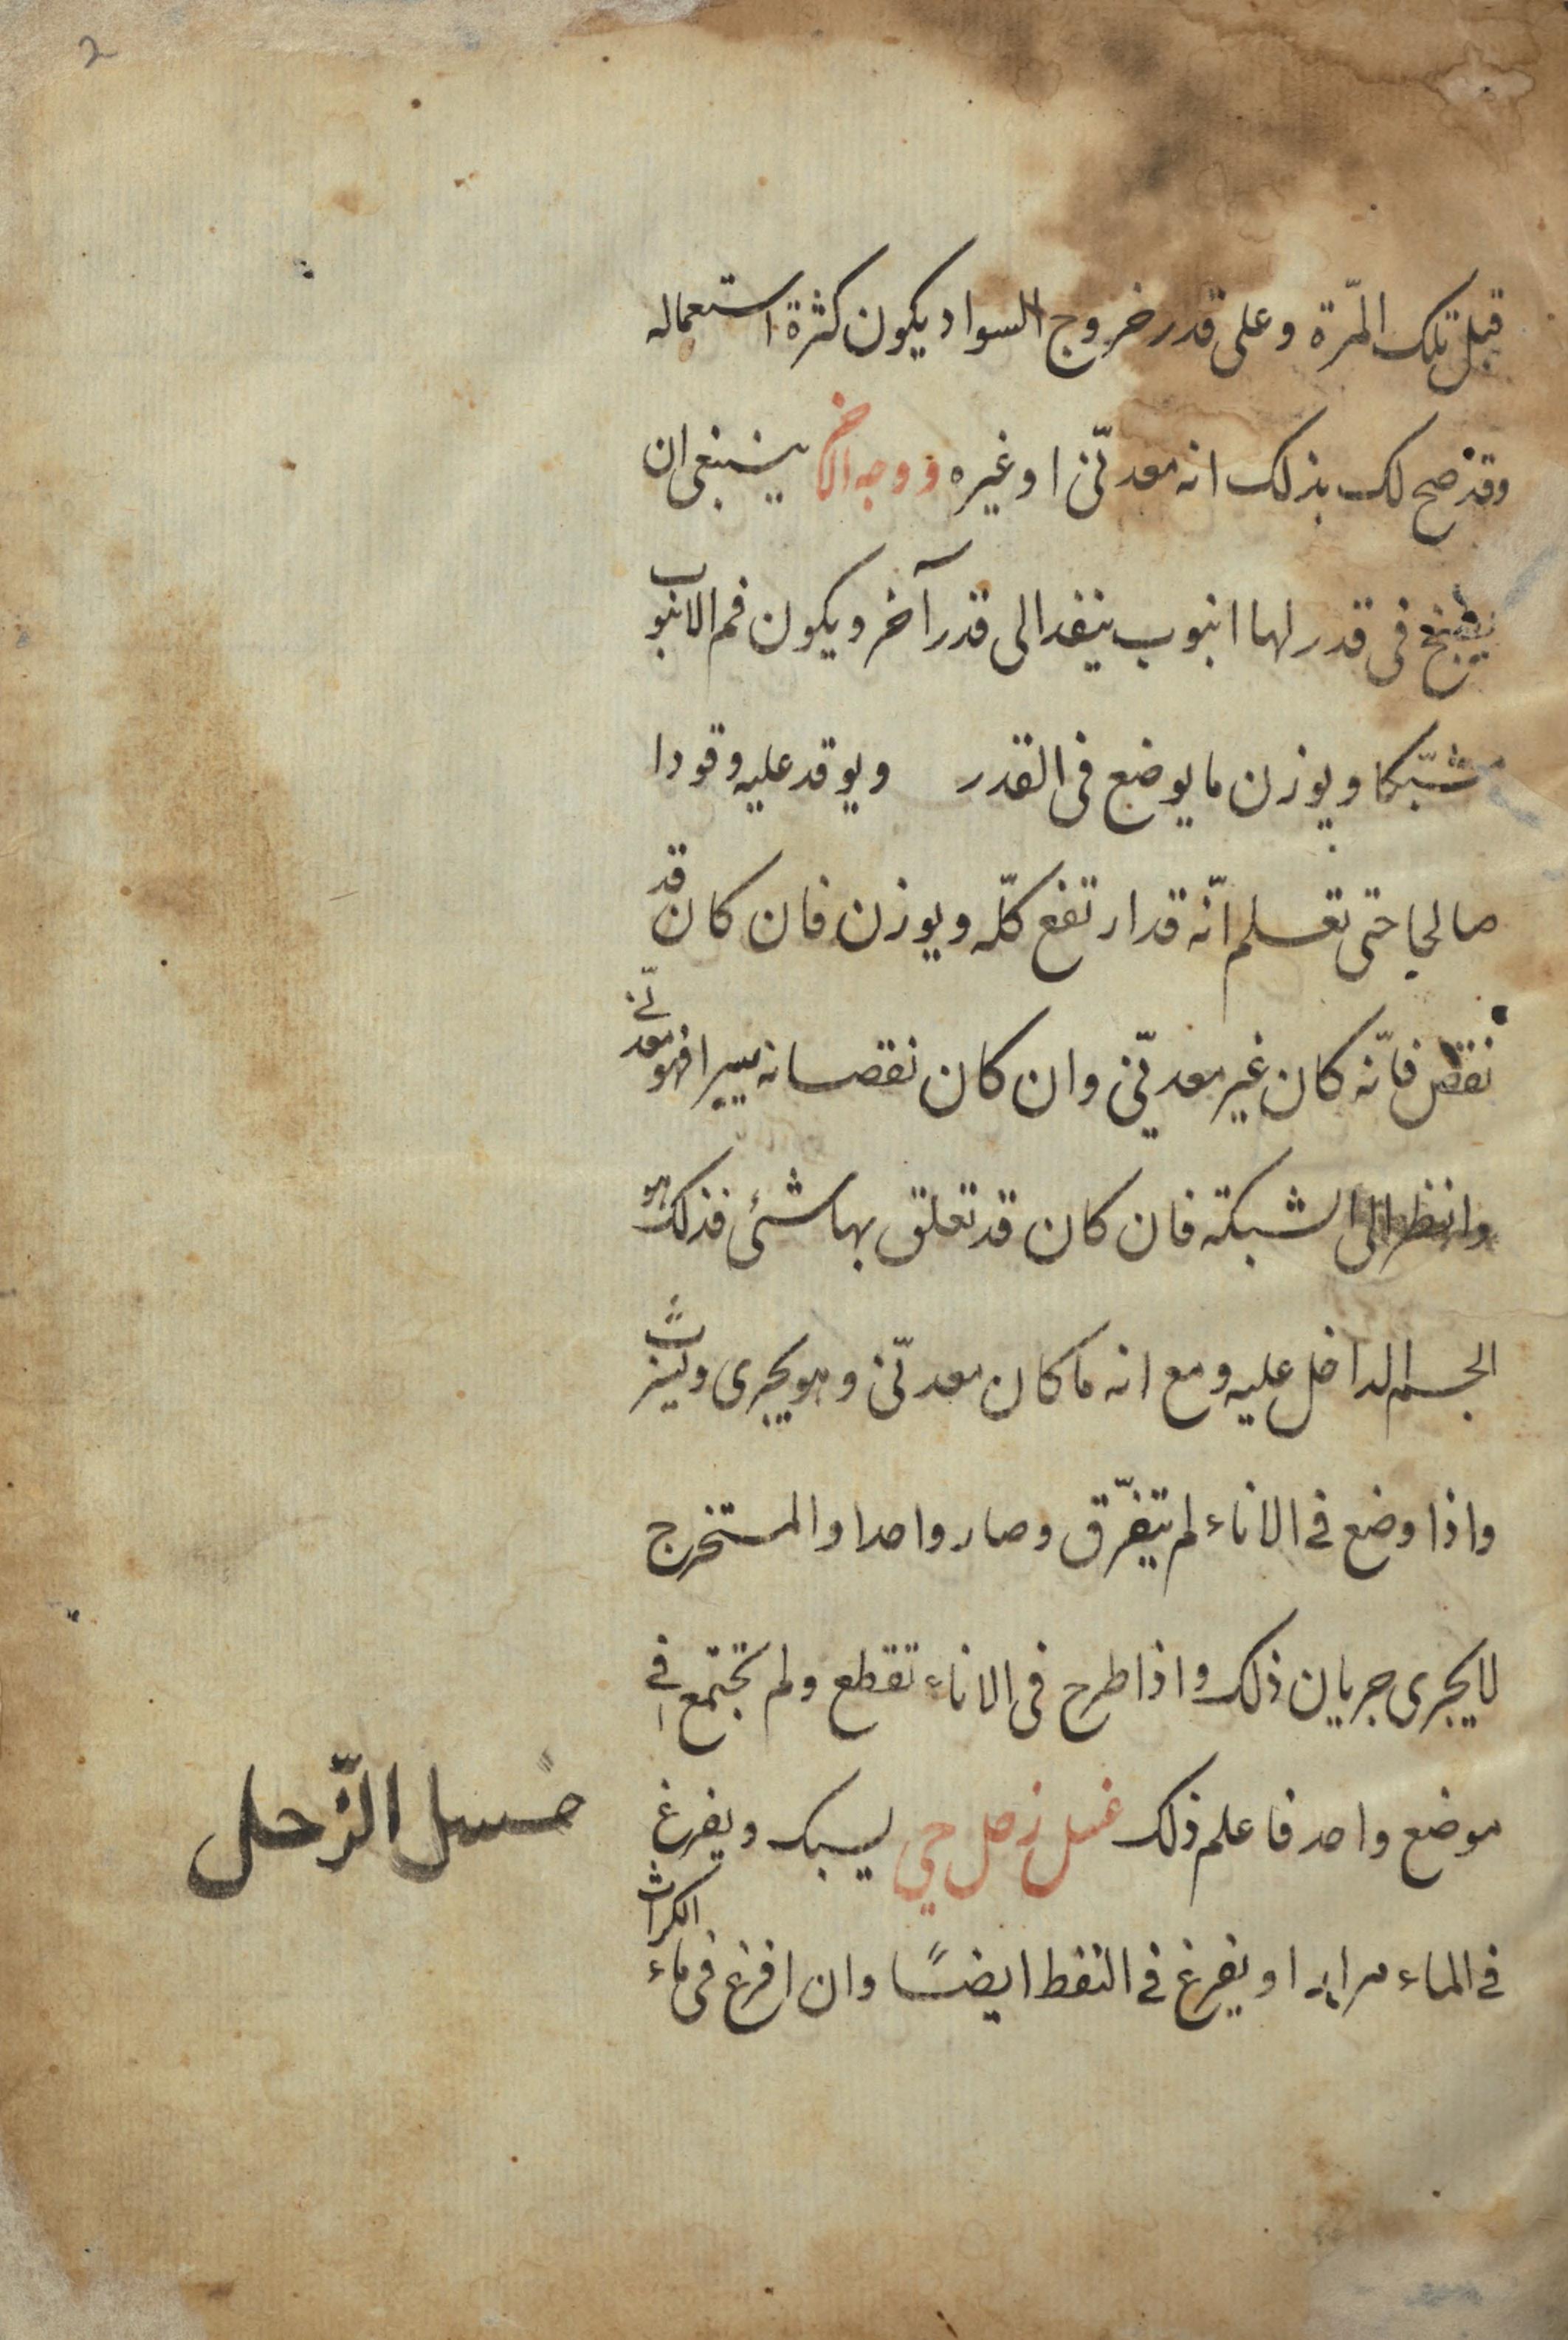 2
قبل تلك المّرة وعلى قدر خروج السواد يكون كثرة استعماله
وقد صح لك بذلك انه معدنّي او غيره ووجه الاخر ينبغى ان
يطبخ فى قدر لها انبوب ينفد الى قدر آخر ويكون فم الانبوب
مشبّكا ويوزن ما يوضع فى القدر ويوقد عليه وقودا
صالحا حتى تعلم انّه قد ارتفع كلّه ويوزن فان كان قد
نقص فانّه كان غير معدنّي وان كان نقصانه يسيرا فهو معدنّي
وانظر الى الشبكة فان كان قد تعلق بها شئ فذلك هو
الجسم الداخل عليه ومع انه ما كان معدنّي وهو يجرى
واذا وضع فى الاناء لم يتفرّق وصار واحدا والمستخرج
لا يجرى جريان ذلك واذا طرح فى الاناء تقطع ولم تجتمع فى
موضع واحد فاعلم ذلك غسل زحل حي يسبك ويفرغ
فى الماء مرارا او يفرغ فى النفط ايضًا وان افرغ فى ماء الكراث
غسل الزّحل